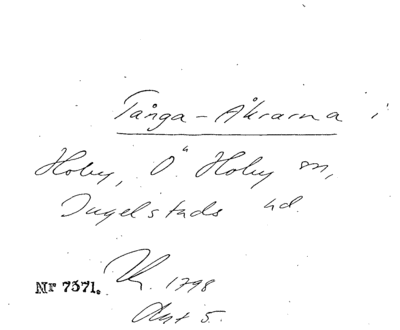 Tånga-Åkrarna i
Hoby, Ö. Hoby sn,
Ingelstads hd.
Nr 7371. 1798
Akt 5.